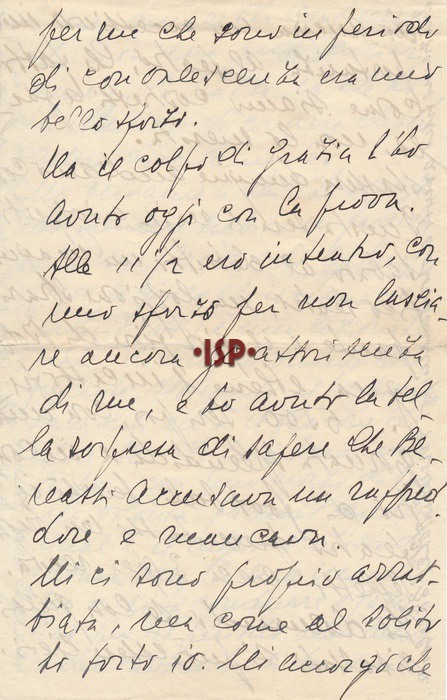 per me che sono in periodo
di convalescenza era uno
bello sforzo.
Ma il colpo di grazia l'ho
avuto oggi con la prova.
Alle 11 1/2 ero in teatro, con
uno sforzo per non lascia-
re ancora gli attori senza
di me, e ho avuto la bel-
la sorpresa di sapere che Be-
nassi accusava un raffred-
dore e mancava.
Mi ci sono proprio arrab-
biata, ma come al solito
ho torto io. Mi accorgo che
•ISP•